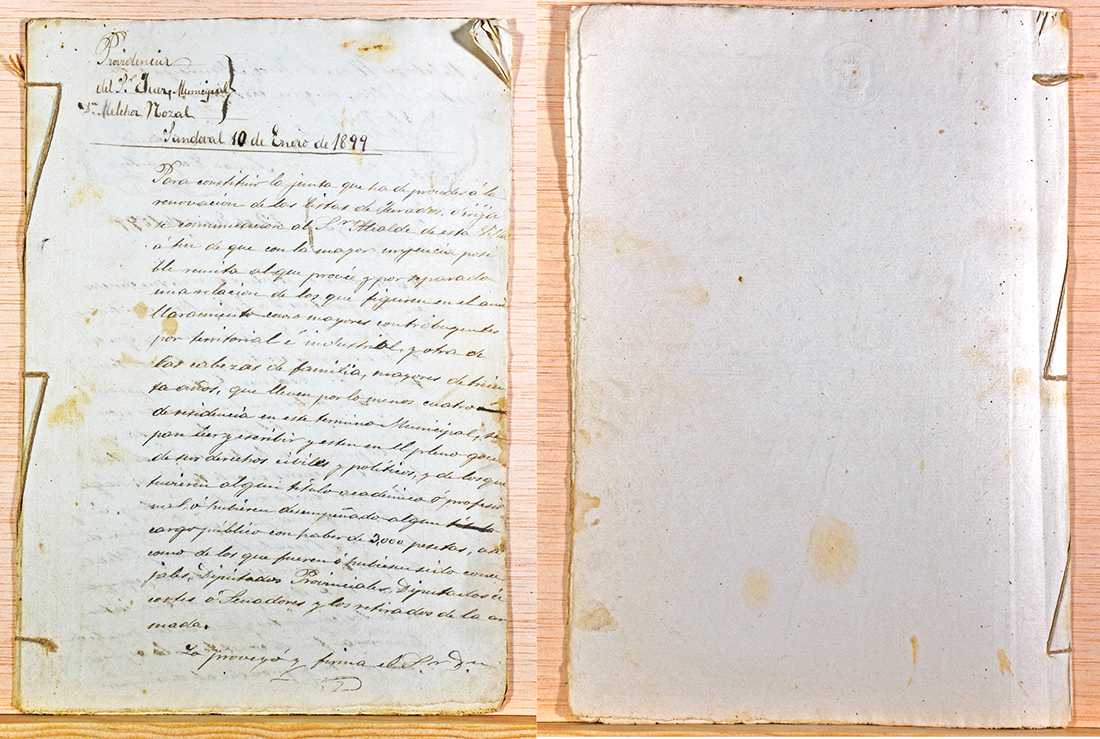 Providencia
del Sr Juez Municipal
Dn Melchor Nozal
Sandoval 10 de Enero de 1899
Para constituir la junta que ha de proceder á la
renovación de las listas de Jurados, dirija
se comunicación al Sr Alcalde de esta Villa
á fin de que con la mayor urgencia posi
ble remita al que provée y por separado
una relación de los que figuren en el ami
llaramiento como mayores contribuyentes
por territorial é industrial, y otra de
las cabezas de familia, mayores de trein
ta años, que lleven por lo menos cuatro
de residencia en este termino Municipal, se
pan leer y escribir y esten en el pleno goce
de sus derechos civiles y políticos, y de los que
tuvieren algun título académico ó profesio
nal, ó hubieren desempeñado algun
cargo público con haber de 2,000 pesetas, asi
como de los que fueren ó hubiesen sido conce
jales, Diputados Provinciales, Diputados á
cortes ó Senadores y los retirados de la ar
mada.
Lo proveyó y firma el Sr Dn